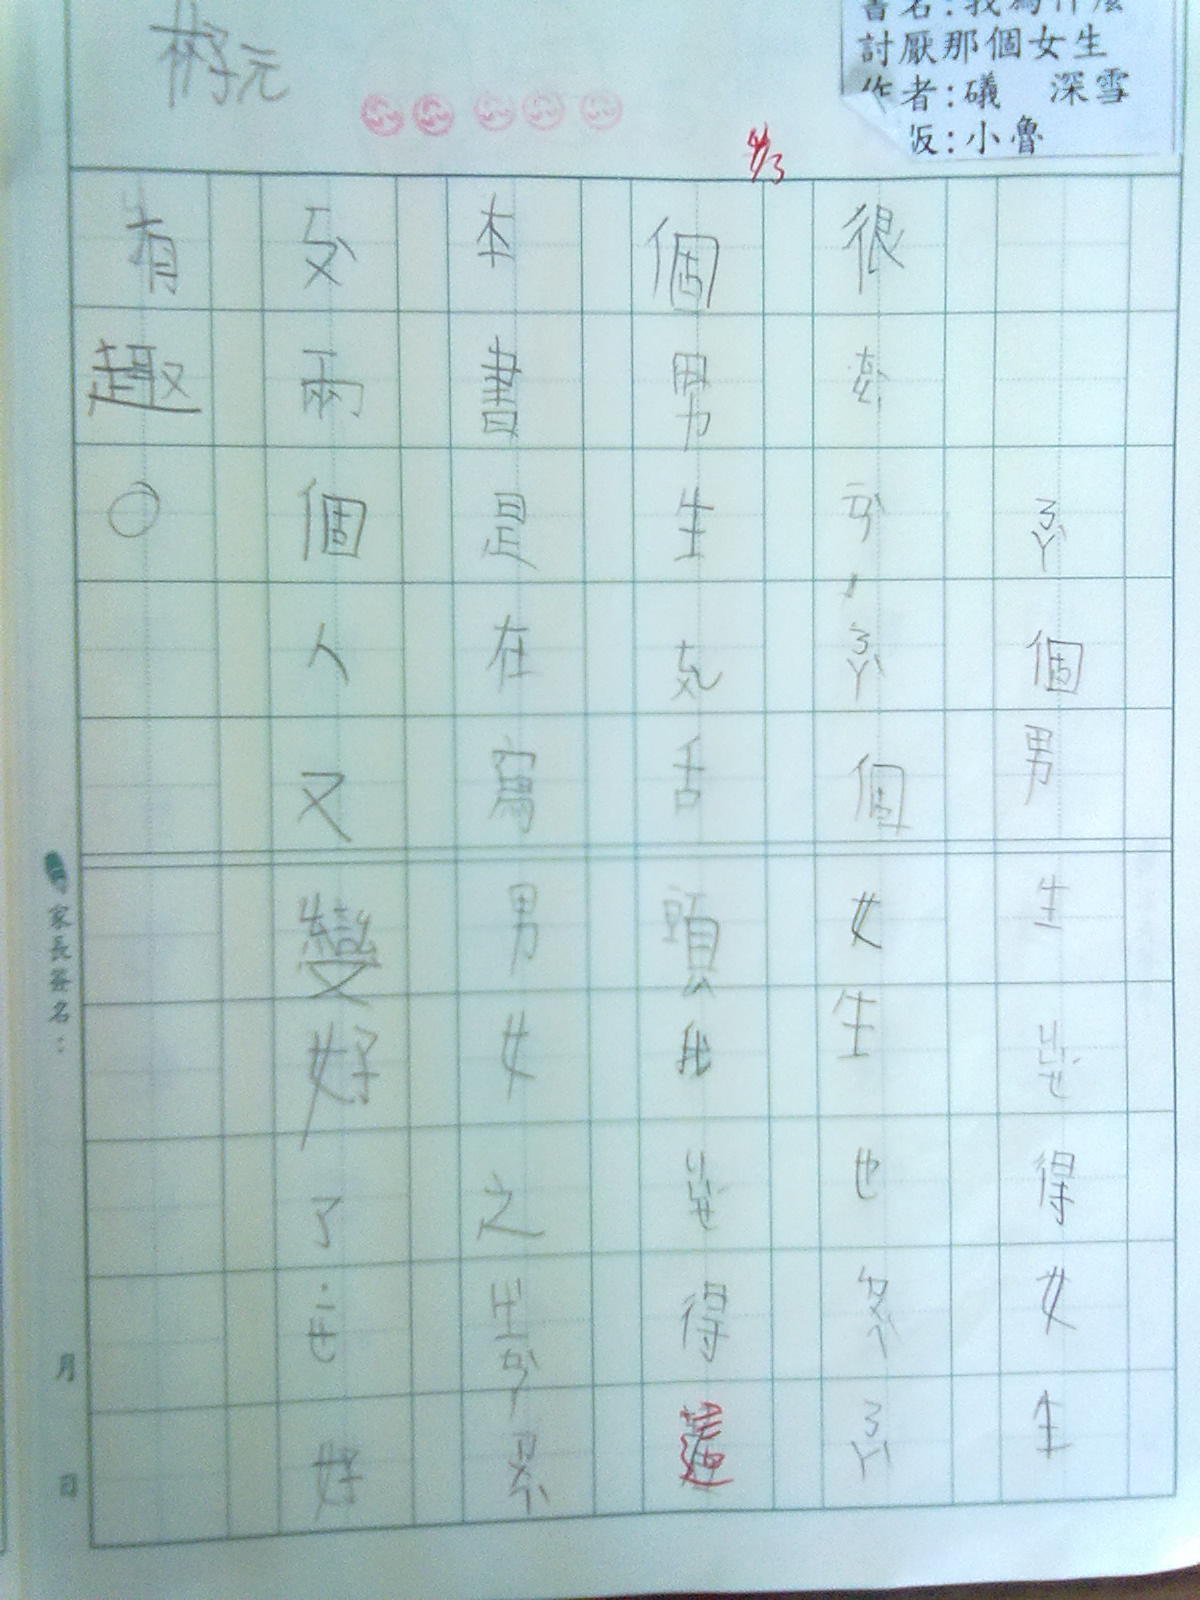 書名:我為什麼
討厭那個女生
作者:礒 深雪
小魯
4/3
ㄋㄚˋ個男生ㄐㄩㄝˊ得女生
很ㄊㄠˇㄧㄢˋ,ㄋㄚˋ個女生也ㄉㄨㄟˋㄋㄚˋ
個男生舌頭,我ㄐㄩㄝˊ得這
本書是在寫男女之
兩個人又變好了好
有趣。
家長簽名:
月 日